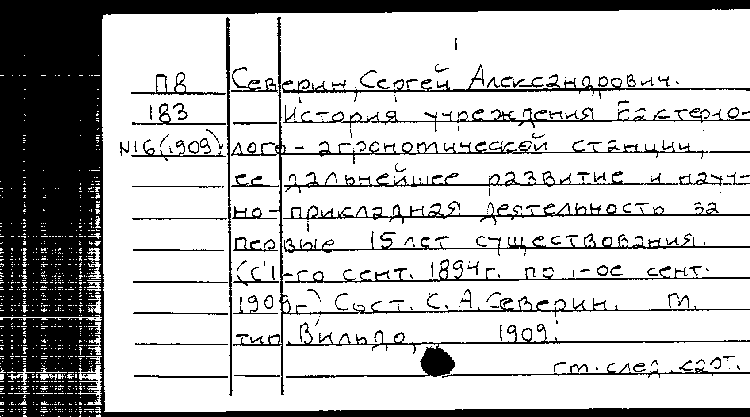 1
П8 Северин, Сергей Александрович.
183 История учреждения Бактерио-
N16(1909). лого-агрономической станции,
ее дальнейшее развитие и науч-
но-прикладная деятельность за
первые 15 лет существования.
(С 1-го сент. 1894г. по 1-ое сент.
1909г.) Сост. С. А. Северин. М.
тип. Вильдо, 1909.
см. след. карт.